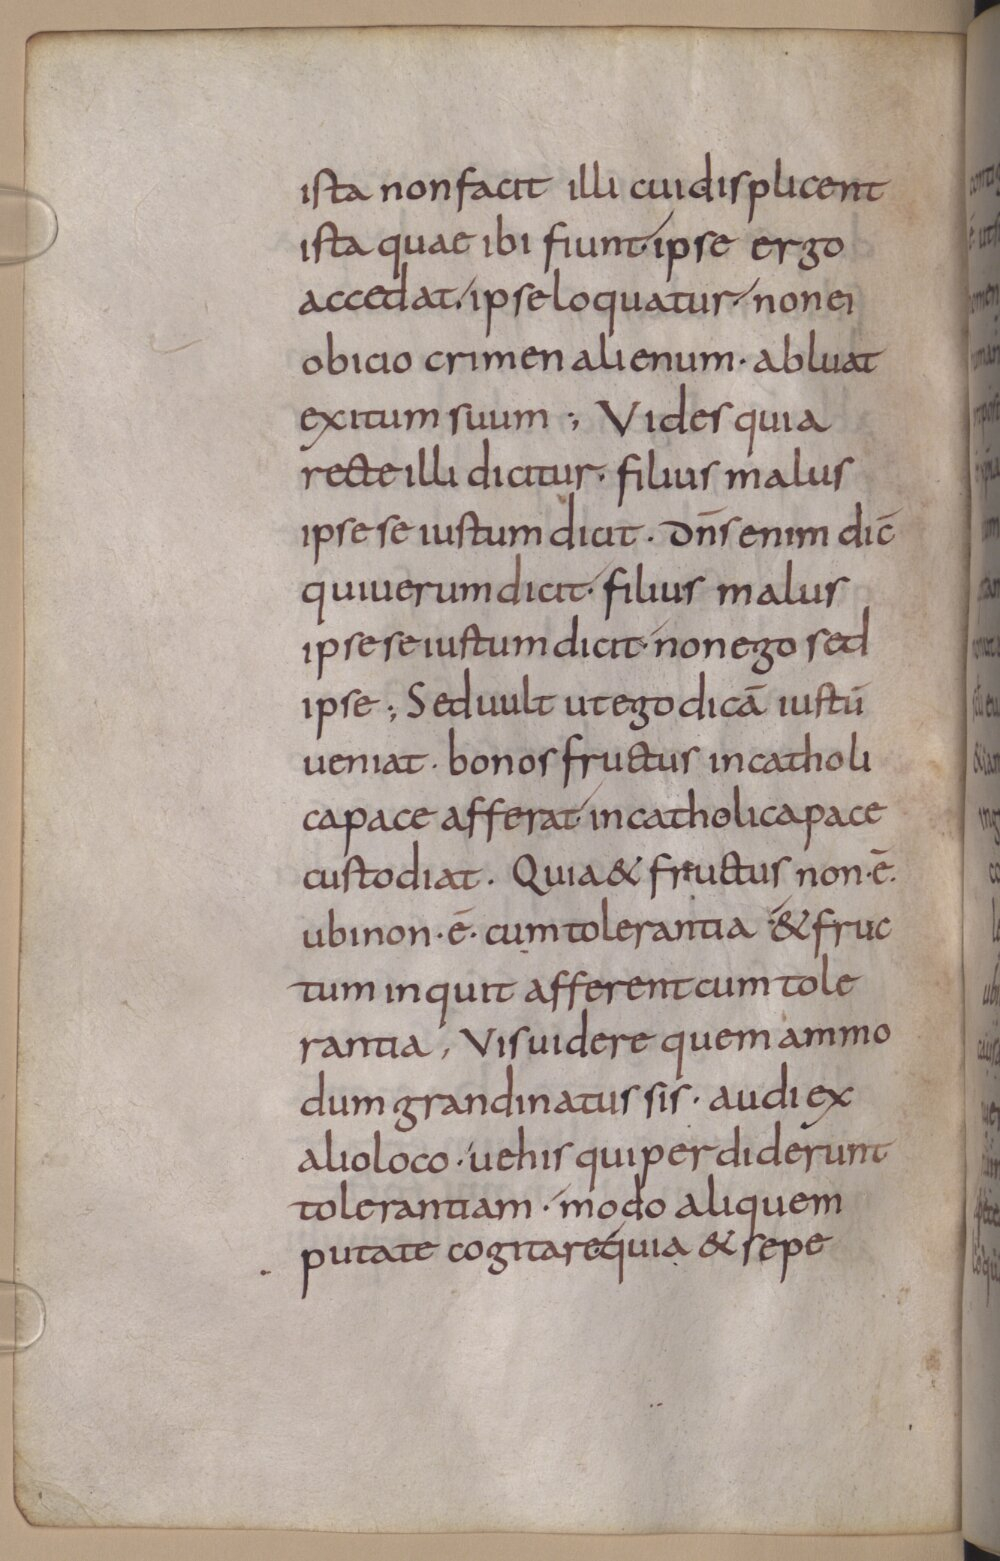 ista non facit illi cui displicent
ista quae ibi fiunt· ipse ergo
accedat· ipse loquatur· non ei
obicio crimen alienum· abluat
exitum suum ; Vides quia
recte illi dicitur· filius malus
ipse se iustum dicit · Dn̄s enim dic̄
qui uerum dicit· filius malus
ipse se iustum dicit· non ego sed
ipse ; Sed uult ut ego dicā iustū
ueniat · bonos fructus in catholi
ca pace afferat· in catholica pace
custodiat · Quia & fructus non ·ē·
ubi non ·ē· cum tolerantia · & fruc
tum inquit afferent cum tole
rantia ; Vis uidere quem ammo
dum grandinatus sis · audi ex
alio loco · uehis qui perdiderunt
tolerantiam · modo aliquem
putate cogitare quia & sepe